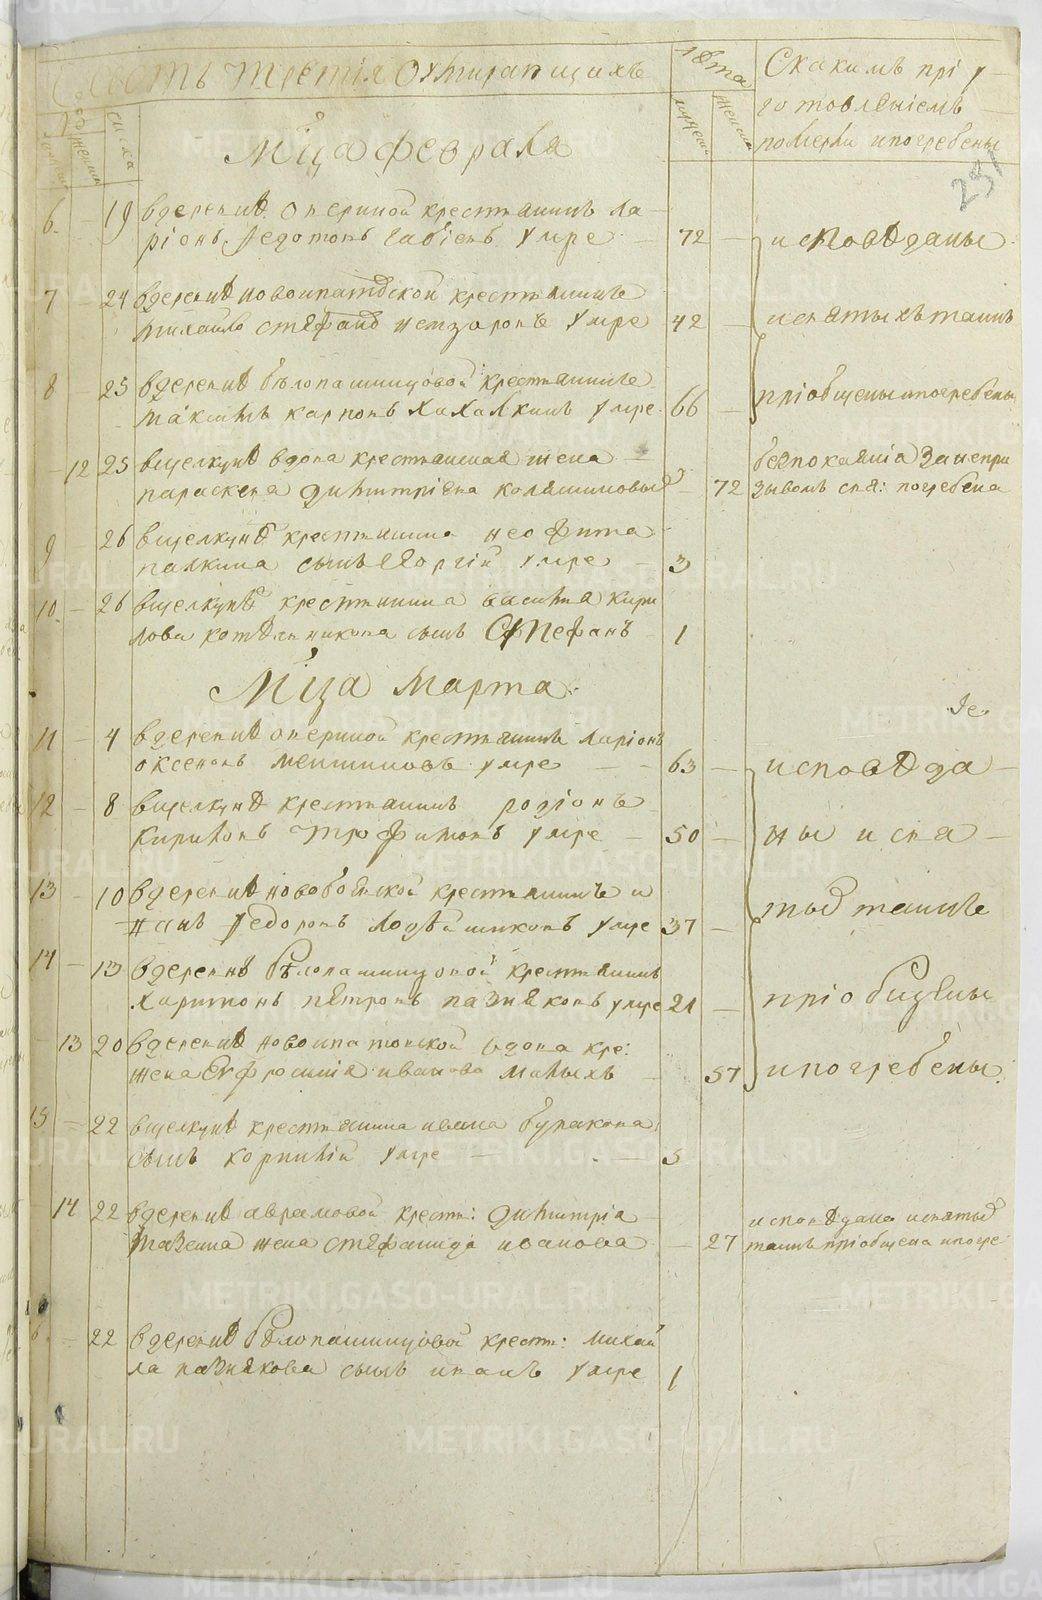 Часть третія О умирающихъ
Лѣта
Скакимъ прі у
готовленіемъ
померли ипогребены
числа
женска
Мц̃а февраля
231
6. 19 вдеревнѣ Опериной крестьянинъ ла
ріонъ Федотовъ умре 72 исповѣданы
7 24 вдеревнѣ новоипатовской крестьянинъ
михайло стефановъ умре 42 исвятыхъ таинъ
8 25 вдеревнѣ бѣлопашинцовой крестьянинъ
максимъ карповъ хахалкинъ умре 66 пріобщены ипогребены
12 25 вщелкунѣ вдова крестьянская жена
параскева димитріева колясниковыхъ 72
безпокаянія занепри
зывомъ свя: погребена
9 26 вщелкунѣ крестьянина неофита
палкина сынъ Егоргій умре 3
10. 26 вщелкунѣ крестьянина василья кири
лова котельникова сынъ Стефанъ 1
Мц̃а марта
11 4 вдеревнѣ опериной крестьянинъ ларіонъ
оксеновъ меншиковъ умре 63 исповѣда
12 8 вщелкунѣ крестьянинъ родіонъ
кириловъ трофимовъ умре 50 ны исвя
13 10 вдеревнѣ новобоевской крестьянинъ и
ванъ Федоровъ умре 37 тыхъ таинъ
14 13 вдеревнѣ бѣлопашинцовой крестьянинъ
Харитонъ петровъ пазняковъ умре 21 пріобщены
13 20 вдеревнѣ новоипатовской вдова кре:
жена Ефросинія иванова малыхъ 57 ипогребены.
15 22 вщелкунѣ крестьянина ивана буракова
сынъ корнилій умре 3
14 22 вдеревнѣ аврамовой крест: димитрія
мазеина жена стефанида иванова 27
исповѣдана исвятыхъ
таинъ пріобщена ипогре
16. 22 вдеревнѣ бѣлопашинцовой крест: михай
ла пазнякова сынъ иванъ умре 1
METRIKI.GASO-URAL.RU